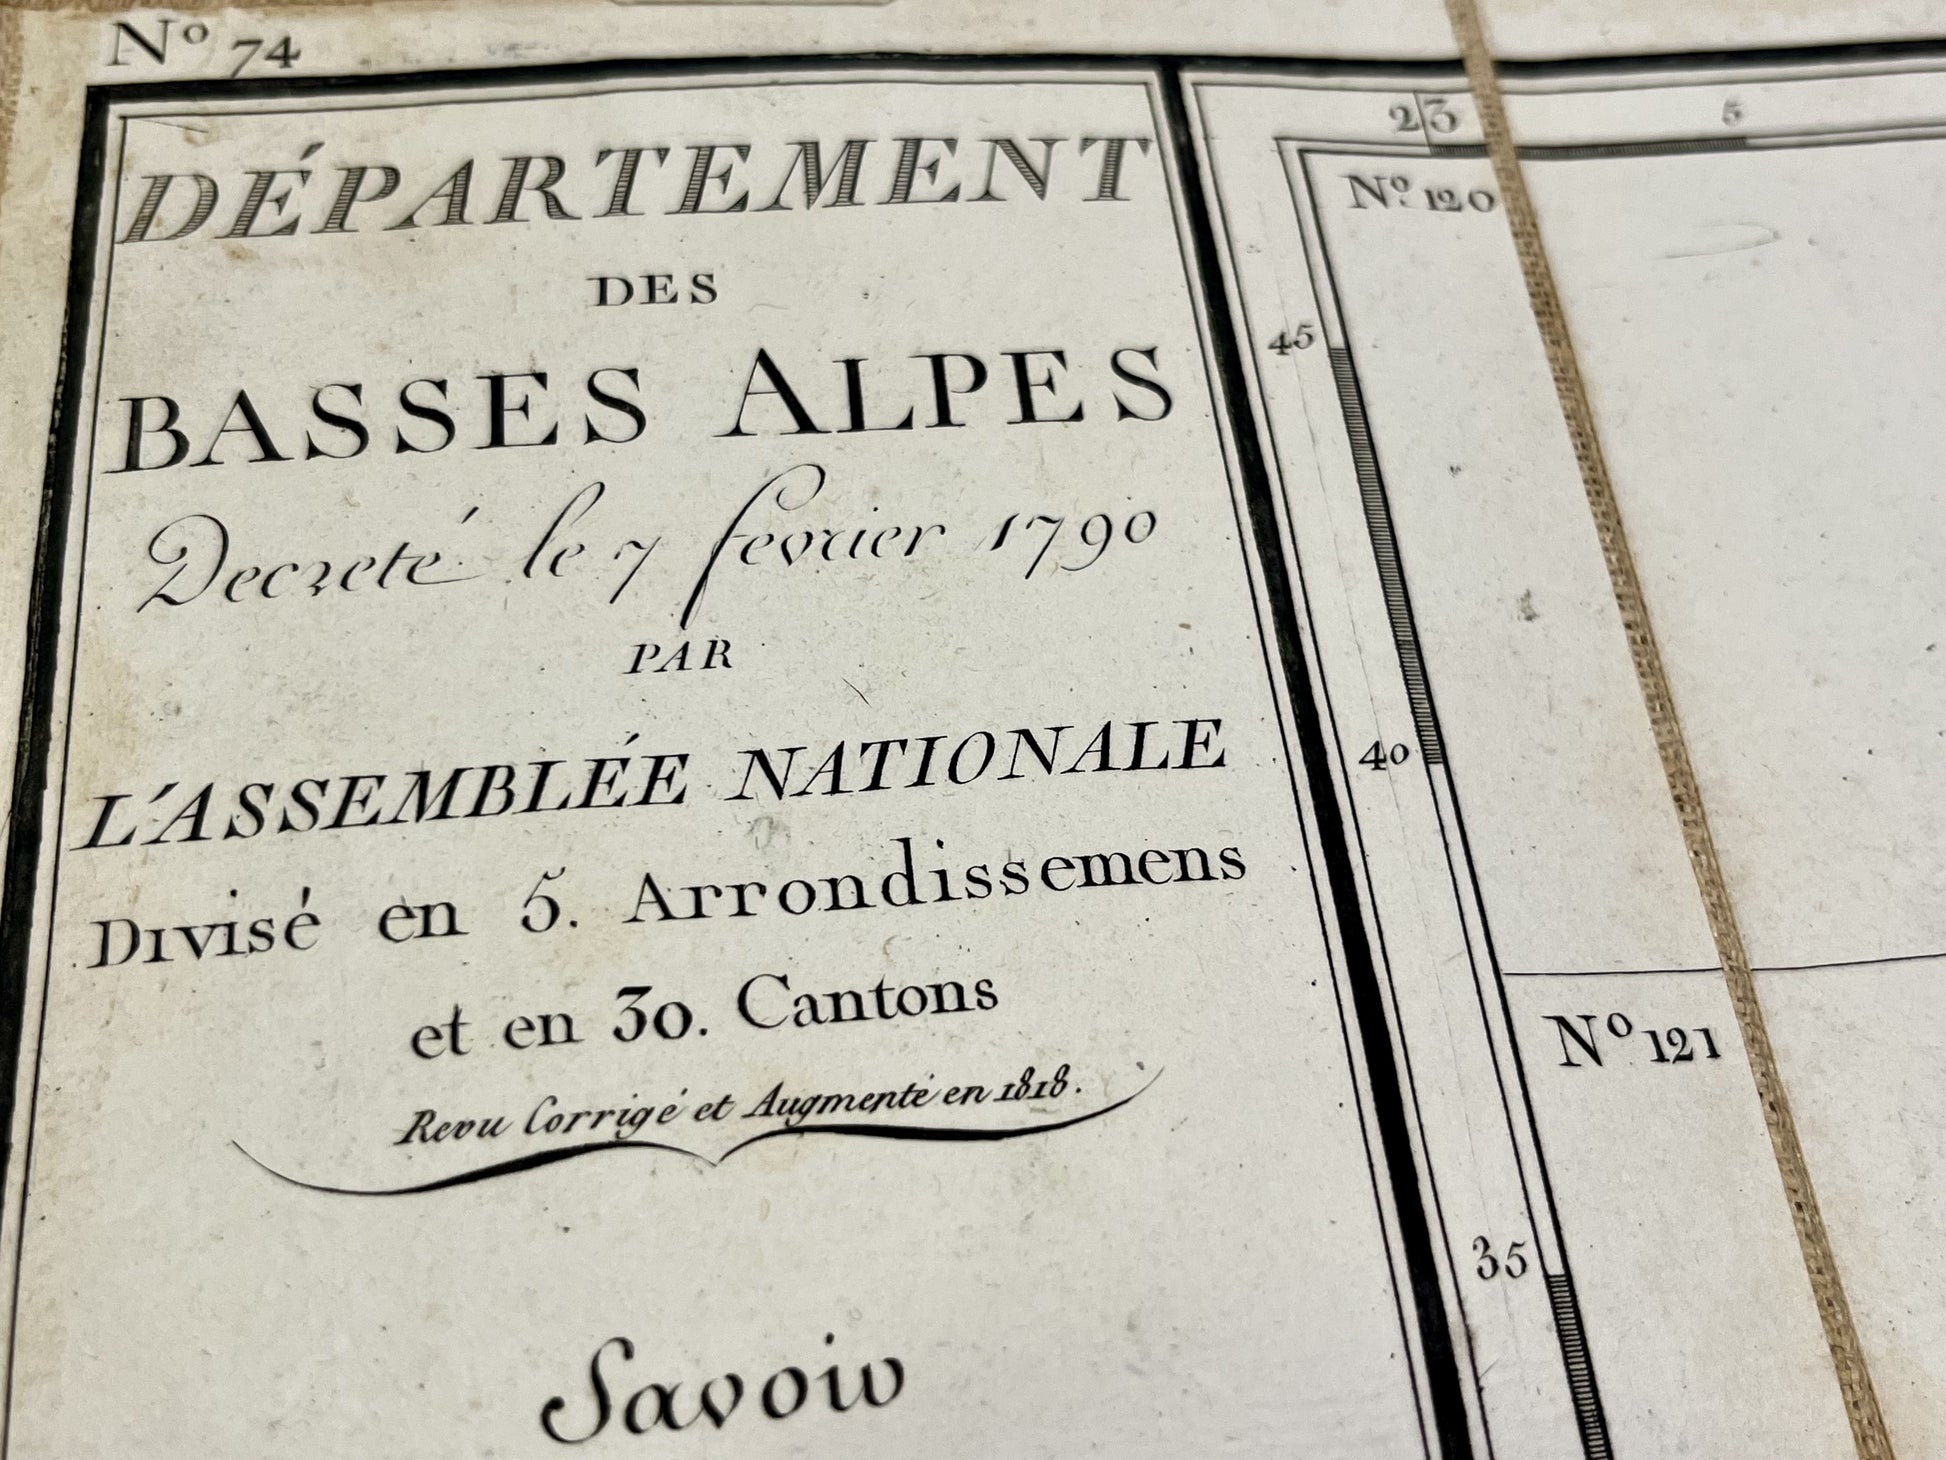 Nº 74
DÉPARTEMENT
DES
BASSES ALPES
Decreté le 7 fevrier 1790
PAR
L'ASSEMBLÉE NATIONALE
Divisé en 5. Arrondissemens
et en 30. Cantons
Revu Corrigé et Augmenté en 1818.
Savoir
23 5
Nº. 120
45
40
Nº 121
35